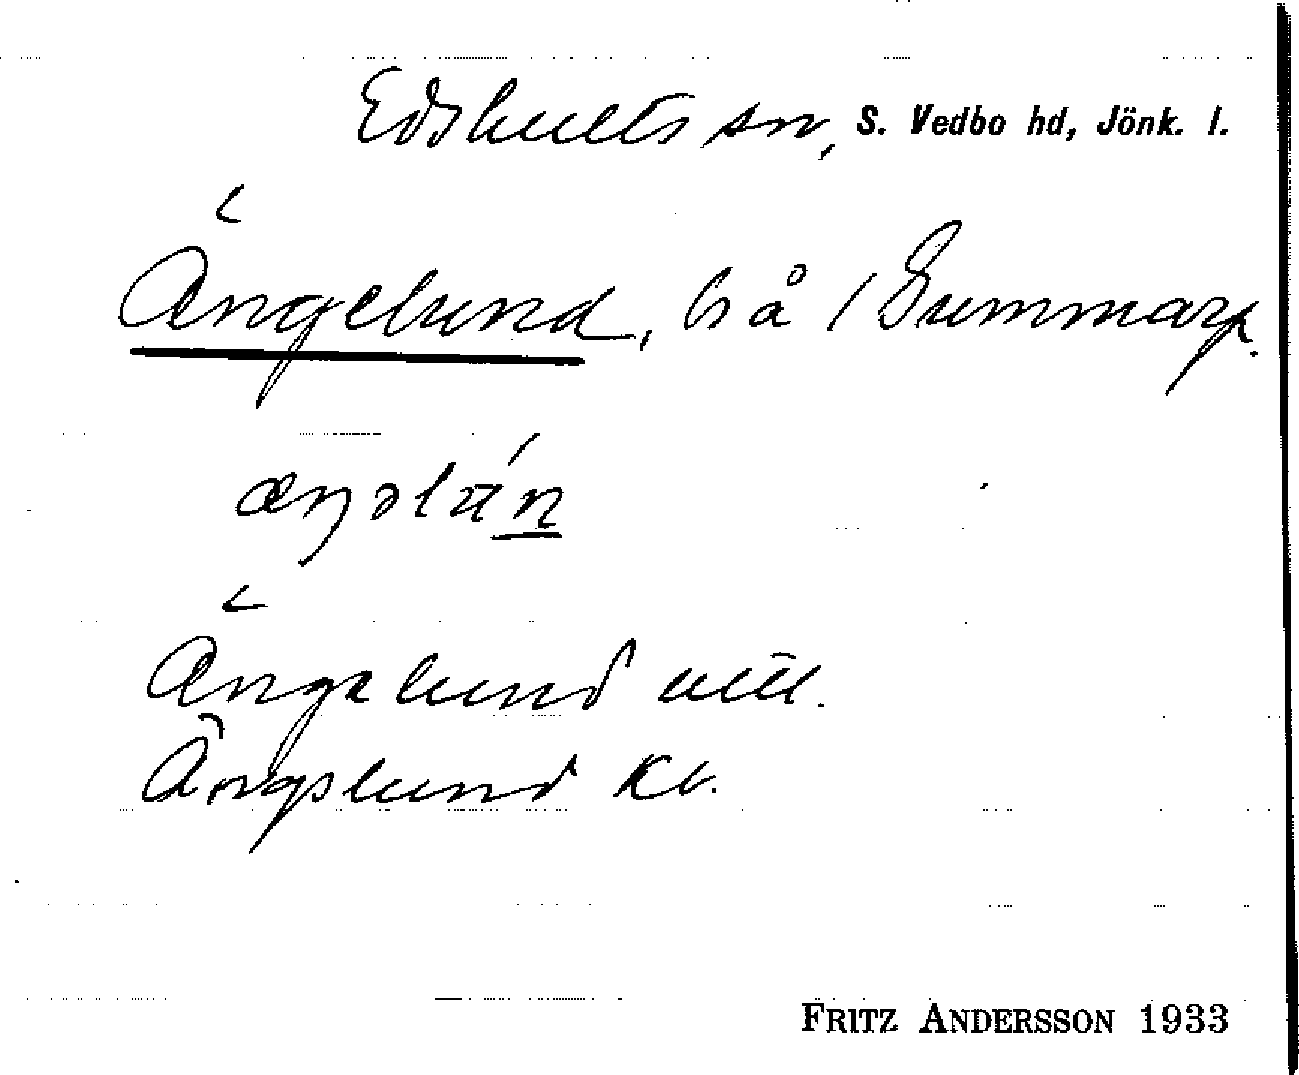 Edshults sn, S. Vedbo hd, Jönk. l.
Ängelund, bs å 1 Gummarp.
æŋəlún
Ängalund uttl.
Ängslund Kb.
FRITZ ANDERSSON 1933